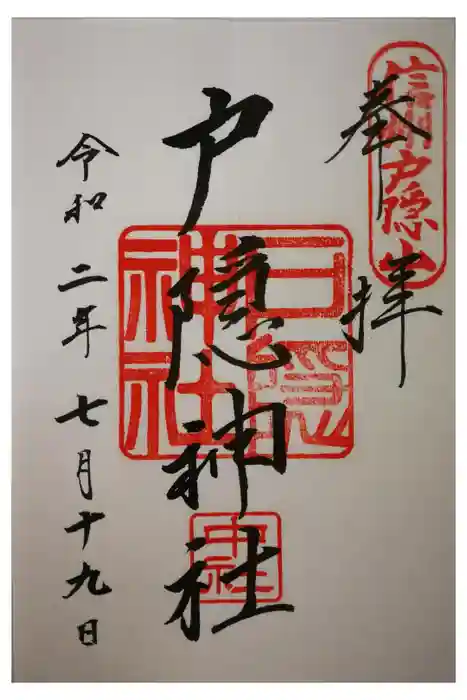 奉拝
信州戸隠山
戸隠神社
戸隠
神社
中社
令和二年七月十九日